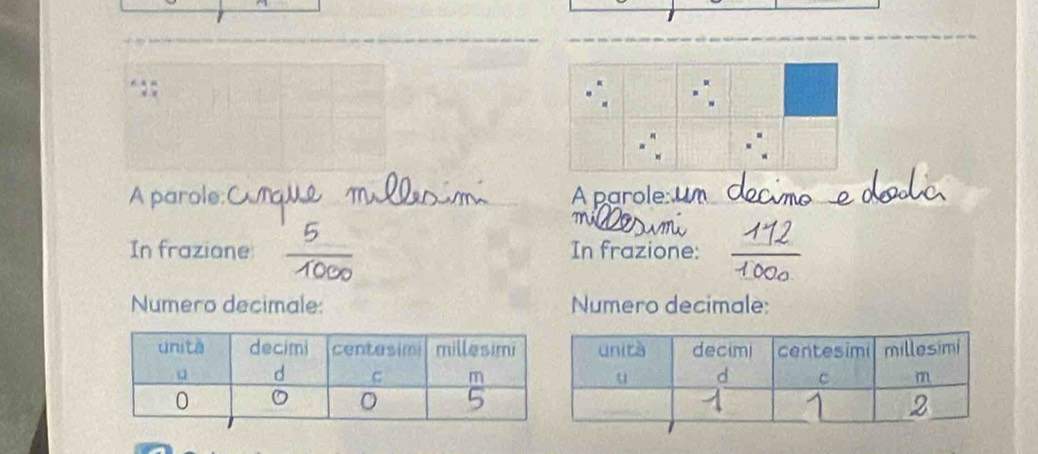 A parole: cinque millesimi
In frazione: 5/1000
Numero decimale:
unità decimi centesimi millesimi
u d c m
0 0 0 5
A parole: un decimo e dodici
millesimi
In frazione: 112/1000
Numero decimale:
unità decimi centesimi millesimi
u d c m
1 1 2